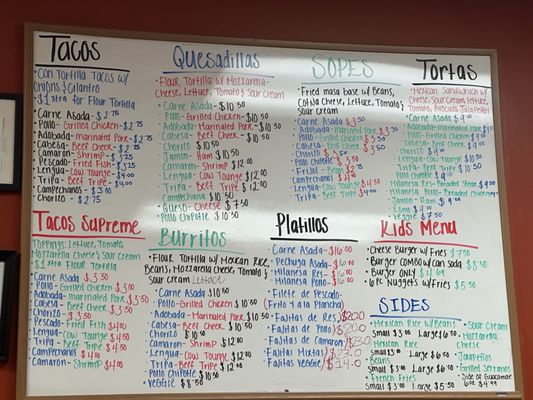 Tacos
· Con Tortilla Tacos w/
Onions & Cilantro
· $1xtra for Flour Tortilla
· Carne Asada - $2.75
· Pollo - Grilled Chicken - $2.75
· Adobada - marinated Pork - $2.75
· Cabesa - Beef Cheek - $2.75
· Camaron - Shrimp - $3.25
· Pescado - Fried Fish - $3.25
· Lengua - Cow Tounge - $4.00
· Tripa - Beef Tripe - $4.00
· Campechanos - $3.00
· Chorizo - $2.75
Quesadillas
· Flour Tortilla w/ Mozzarella
Cheese, Lettuce, Tomato, & Sour Cream
· Carne Asada - $10.50
· Pollo - Grilled Chicken - $10.50
· Adobada - Marinated Pork - $10.50
· Cabesa - Beef Cheek - $10.50
· Chorizo $10.50
· Jamon - Ham $10.50
· Camaron - Shrimp $12.00
· Lengua - Cow Tounge $12.00
· Tripa - Beef Tripe $12.00
· Campechana $10.50
· Queso - Cheese $7.50
· Pollo Chipotle $10.50
Sopes
· Fried masa base w/ Beans,
Cotija Cheese, Lettuce, Tomato, &
Sour Cream
· Carne Asada $3.50
· Adobada - Marinated Pork $3.50
· Pollo - Grilled Chicken $3.50
· Cabesa - Beef Cheek $3.50
· Chorizo $3.50
· Pollo Chipotle $3.50
· Frijol - Beans
· Campechanos
· Lengua - Cow Tounge $4.50
· Tripa - Beef Tripe $4.00
Tortas
· Mexican Sandwich w/
Cheese, Sour Cream, Lettuce,
Tomato, Avocado, Jalapeños
· Carne Asada $9.00
· Adobada - marinated Pork
· Pollo - Grilled Chicken $9.00
· Cabesa - Beef Cheek
· Chorizo $9.00
· Lengua - Cow Tounge $10.50
· Tripa - Beef Tripe $10.50
· Pollo Chipotle $9.00
· Milanesa Res - Breaded Steak $9.00
· Milanesa
· Jamon - Ham $9.00
· Lomo $9.00
· Veggie $7.50
Tacos Supreme
Toppings: Lettuce, Tomato,
Mozzarella Cheese & Sour Cream
· $1xtra Flour Tortilla
· Carne Asada $3.50
· Pollo - Grilled Chicken $3.50
· Adobada - marinated Pork $3.50
· Cabesa - Beef Cheek $3.50
· Chorizo $3.50
· Pescado - Fried Fish $4.00
· Lengua - Cow Tounge $4.50
· Tripa - Beef Tripe $4.50
· Campechanos $4.00
· Camaron - Shrimp $4.00
Burritos
· Flour Tortilla w/ Mexican Rice,
Beans, Mozzarella Cheese, Tomato, &
Sour Cream Lettuce
· Carne Asada $10.50
· Pollo - Grilled Chicken $10.50
· Adobada - Marinated Pork $10.50
· Cabesa - Beef Cheek $10.50
· Chorizo $10.50
· Camaron - Shrimp $12.00
· Lengua - Cow Tounge $12.00
· Tripa - Beef Tripe $12.00
· Pollo Chipotle $10.50
· Veggie $8.50
Platillos
· Carne Asada - $16.00
· Pechuga Asada - $16.00
· Milanesa Res - $16.00
· Milanesa Pollo - $16.00
· Filete de Pescado -
(Frito y a la Plancha)
· Fajitas de Res / $20.0
· Fajitas de Pollo / $20.0
· Fajitas de Camaron / $23.0
· Fajitas Mixtas / $23.0
· Fajitas Veggie / $14.0
Kids Menu
· Cheese Burger w/ Fries $7.50
· Burger Combo w/ Can Soda $8.50
· Burger Only $4.69
· 6 Pc Nuggets w/ Fries $5.50
Sides
· Mexican Rice w/ Beans
Small $3.00 Large $6.50
· Mexican Rice
Small $3.00 Large $6.50
· Beans
Small $3.00 Large $6.50
· French Fries
Small $3.00 Large $5.50
· Sour Cream
· Mozzarella
Cheese
· Jalapeños
· Grilled Serranos
· Side of Guacamole
6 oz $4.99